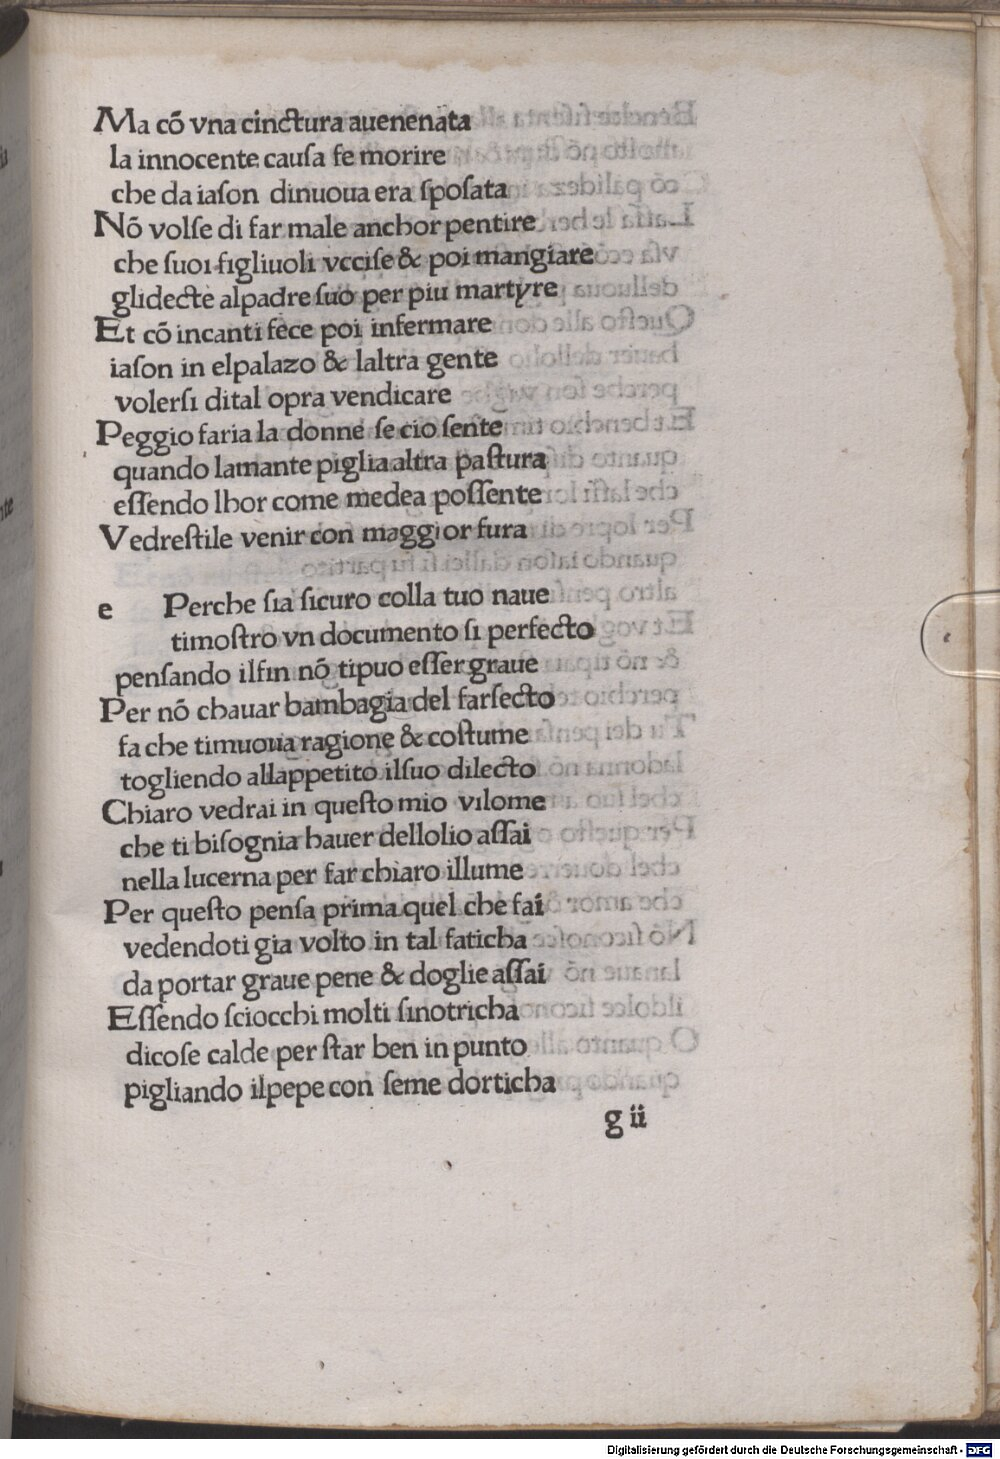 Ma cõ vna cinctura auenenata
la innocente cauſa fe morire
che da iaſon dinuoua era ſpoſata
Nõ volſe di far male anchor pentire
che ſuoi figliuoli vcciſe & poi mangiare
glidecte alpadre ſuo per piu martyre
Et cõ incanti fece poi infermare
iaſon in elpalazo & laltra gente
volerſi dital opra vendicare
Peggio faria la donne ſe cio ſente
quando lamante piglia altra paſtura
eſſendo lhor come medea poſſente
Vedreſtile venir con maggior fura
e Perche ſia ſicuro colla tuo naue
timoſtro vn documento ſi perfecto
penſando ilfin nõ tipuo eſſer graue
Per nõ chauar bambagia del farſecto
fa che timuoua ragione & coſtume
togliendo allappetito ilſuo dilecto
Chiaro vedrai in queſto mio vilome
che ti biſognia hauer dellolio aſſai
nella lucerna per far chiaro illume
Per queſto penſa prima quel che fai
vedendoti gia volto in tal faticha
da portar graue pene & doglie aſſai
Eſſendo ſciocchi molti ſinotricha
dicoſe calde per ſtar ben in punto
pigliando ilpepe con ſeme dorticha
g ii
Digitalisierung gefördert durch die Deutsche Forschungsgemeinschaft - DFG